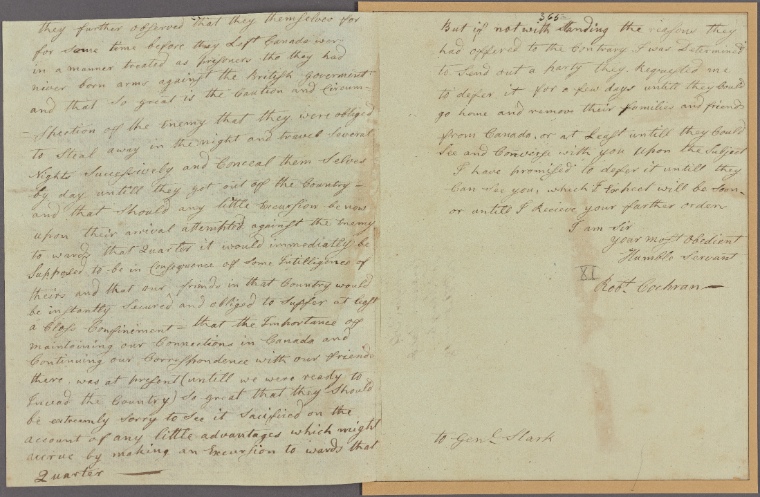 they further observed that they themselves for
for some time before they Left Canada wer
in a manner treated as prisoners tho they had
never born arms against the British goverment
and that so great is the Caution and Circum-
-Spection of the Enemy that they were obliged
to Steal away in the night and travel Several
Nights Sucessively and Conceal them Selves
by day untill they got out of the Country-
and that Should any little Excursion be now
upon their arrival attempted against the Enemy
to wards that Quarter it would immediately be
Supposed to be in Consequence of Some Intelligence of
theirs and that our frinds in that Country would
be instantly Secured and obliged to Suffer at left
a Closs Confinement - that the Importance of
maintaining our Connections in Canada and
Continuing our Correspondence with our friends
there was at present (untill we were ready to
Invead the Country) So great that they Should
be extremly Sorry to See it Sacrificed on the
account of any little advantages which might
accrue by making an Excursion to wards that
Quarter —
365
But if not with Standing the reasons they
had offered to the Contrary I was Determined
to Send out a party they Requested me
to defer it for a few days untill they Could
go home and remove their families and friends
from Canada, or at Leest untill they Could
See and Converse with you upon the Subject
I have promised to defer it untill they
Can See you, which I Expect will be Soon-
or untill I Recieve your farther orders
I am Sir
your most Obedient
Humble Servant
XI
Robt Cochran —
to Genl Stark